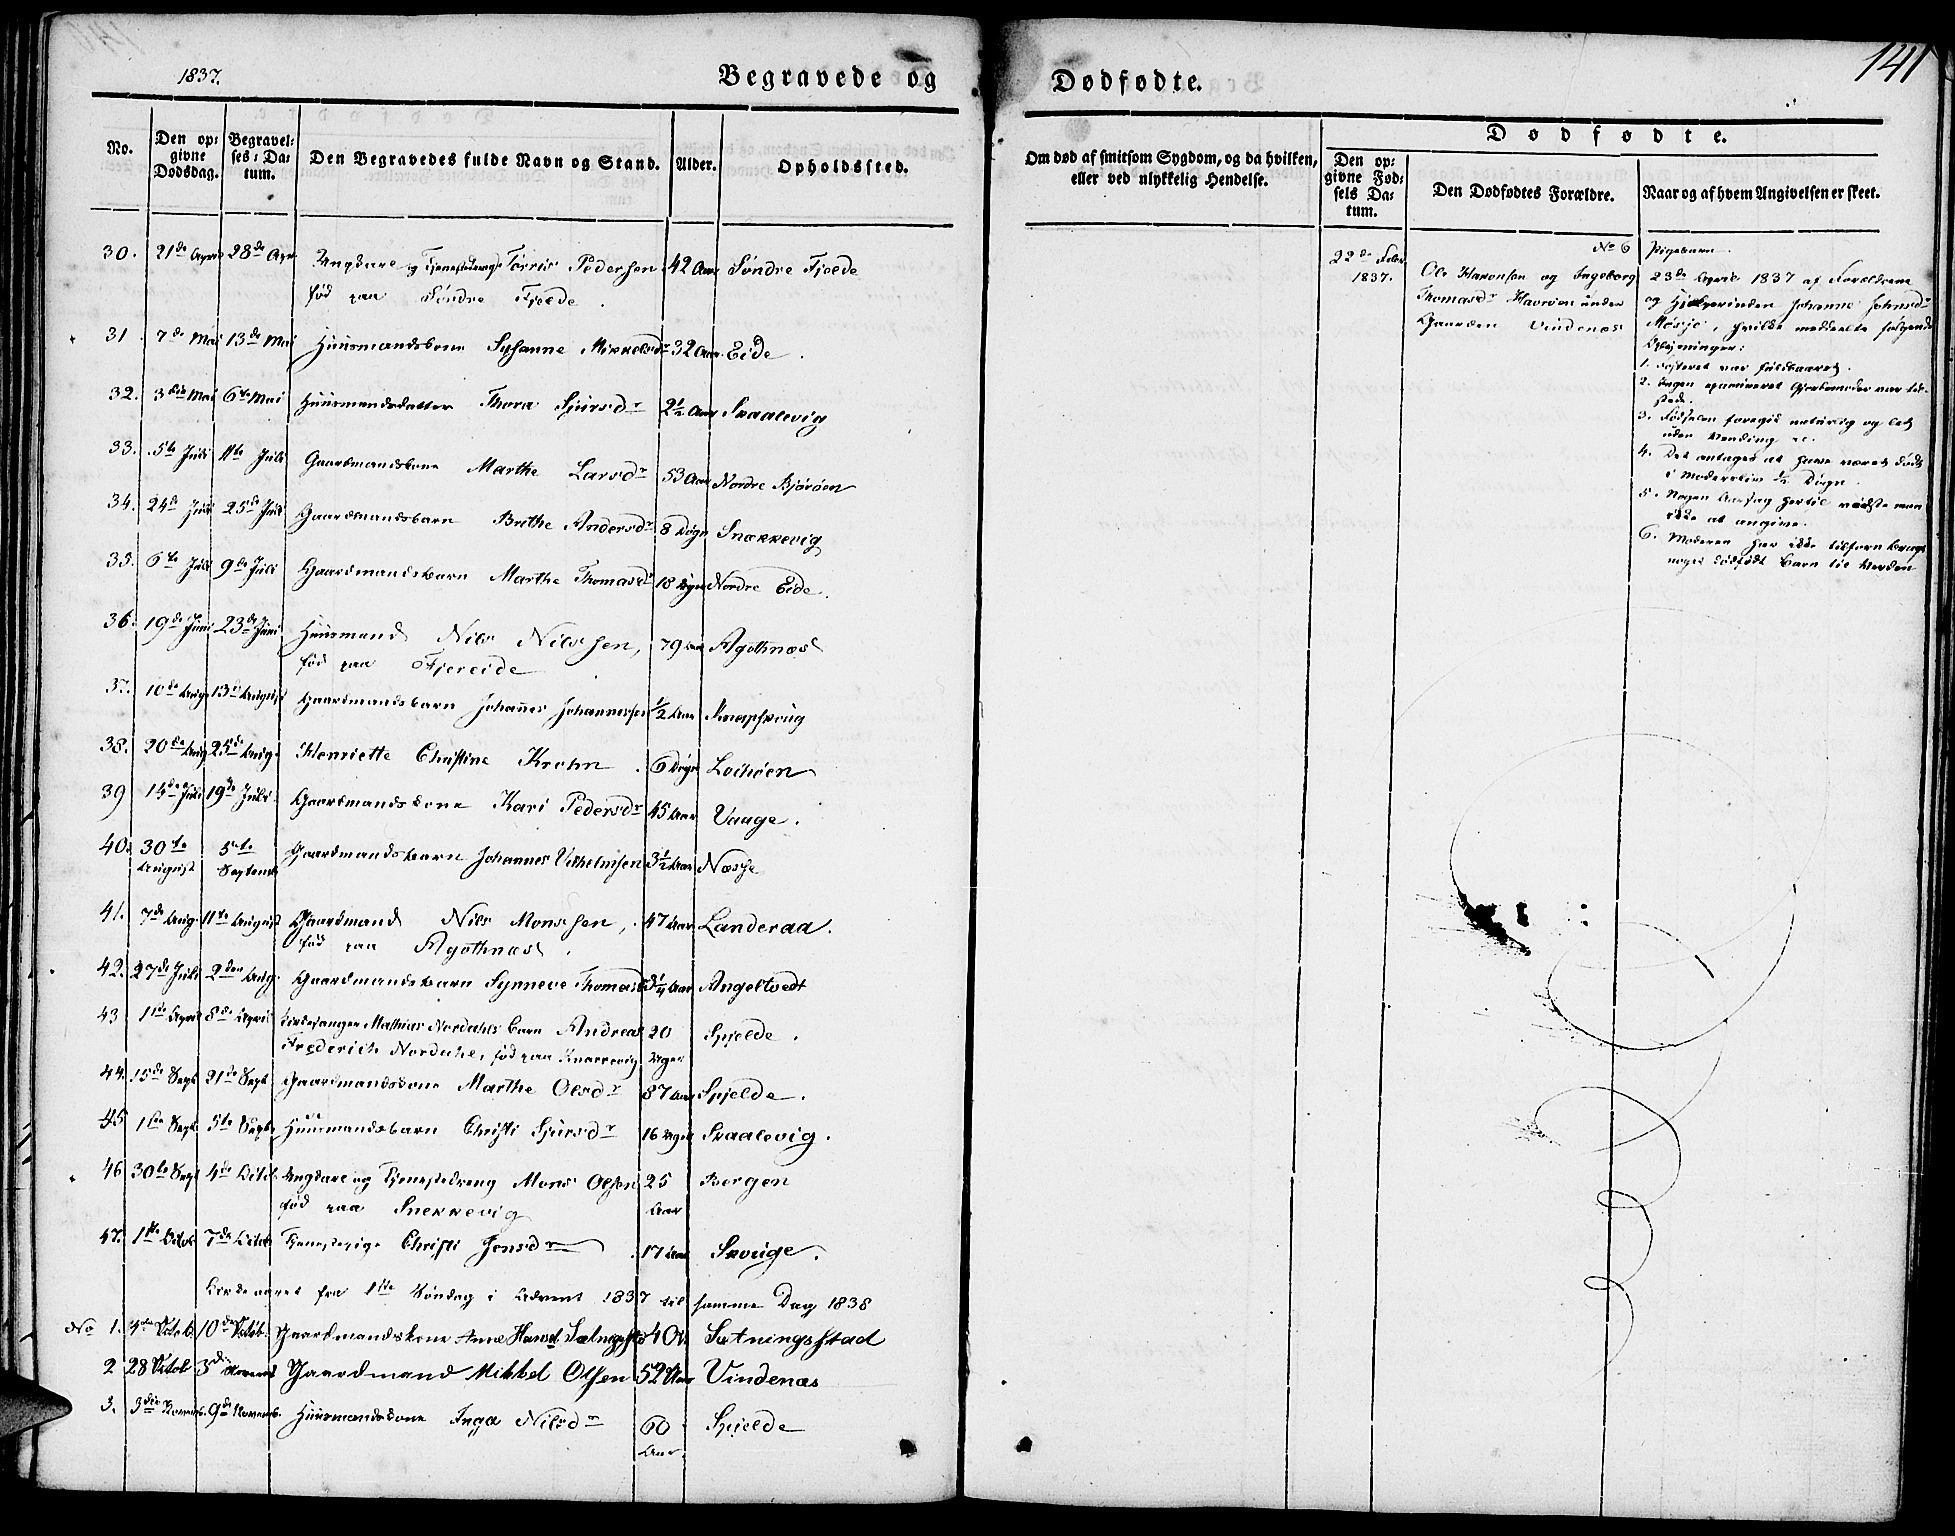 1837.
Begravede og
Dødfødte.
141
No.
Den op-
givne
Dødsdag.
Begravel-
ses-Da-
tum.
Den Begravedes fulde Navn og Stand.
Alder.
Opholdssted.
Om død af smitsom Sygdom, og da hvilken,
eller ved ulykkelig Hendelse.
Dødfødte.
Den op-
givne Fød-
sels Da-
tum.
Den Dødfødtes Forældre.
Naar og af hvem Angivelsen er skeet.
30. 21de April 28de Apr Ungkarl og Tjenestedreng Torris Pedersen 42 Aar Søndre Fjelde
fød paa Søndre Fjelde.
31. 7de Mai 13de Mai Huusmandskone Sysanne Mikkelsdr 32 Aar. Eide.
32. 3die Mai 6te Mai Huusmandsdatter Thora Sjursdr 2½ Aar Skaalevig
33. 5te Juli 11te Juli Gaardmandskone Marthe Larsdr 53 Aar Nordre Bjørøen
34. 24de Juli 25de Juli Gaardmandsbarn Brithe Andersdr 8 Døgn Snekkevig
35. 6te Juli 9de Juli Gaardmandsbarn Marthe Thomasdr 18 Døgn Nordre Eide.
36. 19de Juni 23de Juni Huusmand Nils Nilssen, 79 Aar Agothnæs
fød paa Fjereide
37. 10de Aug 13de August Gaardmandsbarn Johannes Johannessen ½ Aar Knapskoug
38. 20de Aug 25de Aug. Henriette Christine Krohn. 6 Døgn Lochøen
39 14de Juli 19de Juli. Gaardmandskone Kari Pedersdr 45 Aar Vaage.
40. 30te 5te Gaardmandsbarn Johannes Vilhelmsen 3½ Aar Næsse
August Septemb
41. 7de Aug. 11te August Gaardmand Nils Monssen, 47 Aar Landeraa.
fød paa Agothnæs.
42. 27de Juli 2den Aug. Gaardmandsbarn Synneve Thomasd 3¼ Aar Angeltvedt
43 1ste April 8de April Kirkesanger Mathias Nordahls Barn Andreas 20 Spjelde.
Frederich Nordahl, fød paa Knarrevig. Uger
44. 15de Sept 21de Sept Gaardmandskone Marthe Olsdr 87 Aar Spjelde.
45 1ste Sept 5te Septb. Huusmandsbarn Christi Sjursdr 16 Uger Skaalevig.
46 30te Sept 4de Octob Ungkarl og Tjenestedreng Mons Olsen 25 Bergen
fød paa Snekkevig Aar
47. 1ste Octob 7de Octob Tjenestepige Christi Jensdr 17 Aar Skouge.
Kirkeaaret fra 1ste Søndag i Advent 1837 til samme Dag 1838
No 1. 4de Octob. 10de Octob. Gaardmandskone Anne Hansd 40 Sætningsstad
2 28 Octob 3die Novemb Gaardmand Mikkel Olsen 52 Aar Vindenæs
3. 3die Novemb. 9de Novemb. Huusmandskone Inga Nilsdr 60 Spjelde
Aar.
22de Febr
1837.
No 6
Ole Haronsen og Ingeborg
Thomasdr Havrøen under
Gaarden Vindenæs
Pigebarn.
23de April 1837 af Forældrene
og Hjelperinden Johanne Johnsdr
Møvje, hvilke meddeelte følgende
Oplysninger:
1. Fosteret var fuldbaaret.
2. Ingen examineret Gjordemoder var til-
stede.
3. Fødselen foregik naturlig og let
uden Vending &c.
4. Det antages at have været dødt
i Moderslivet ½ Døgn.
5. Nogen Aarsag hertil vidste man
ikke at angive.
6. Moderen har ikke tilforn bragt
noget dødfødt Barn til Verden